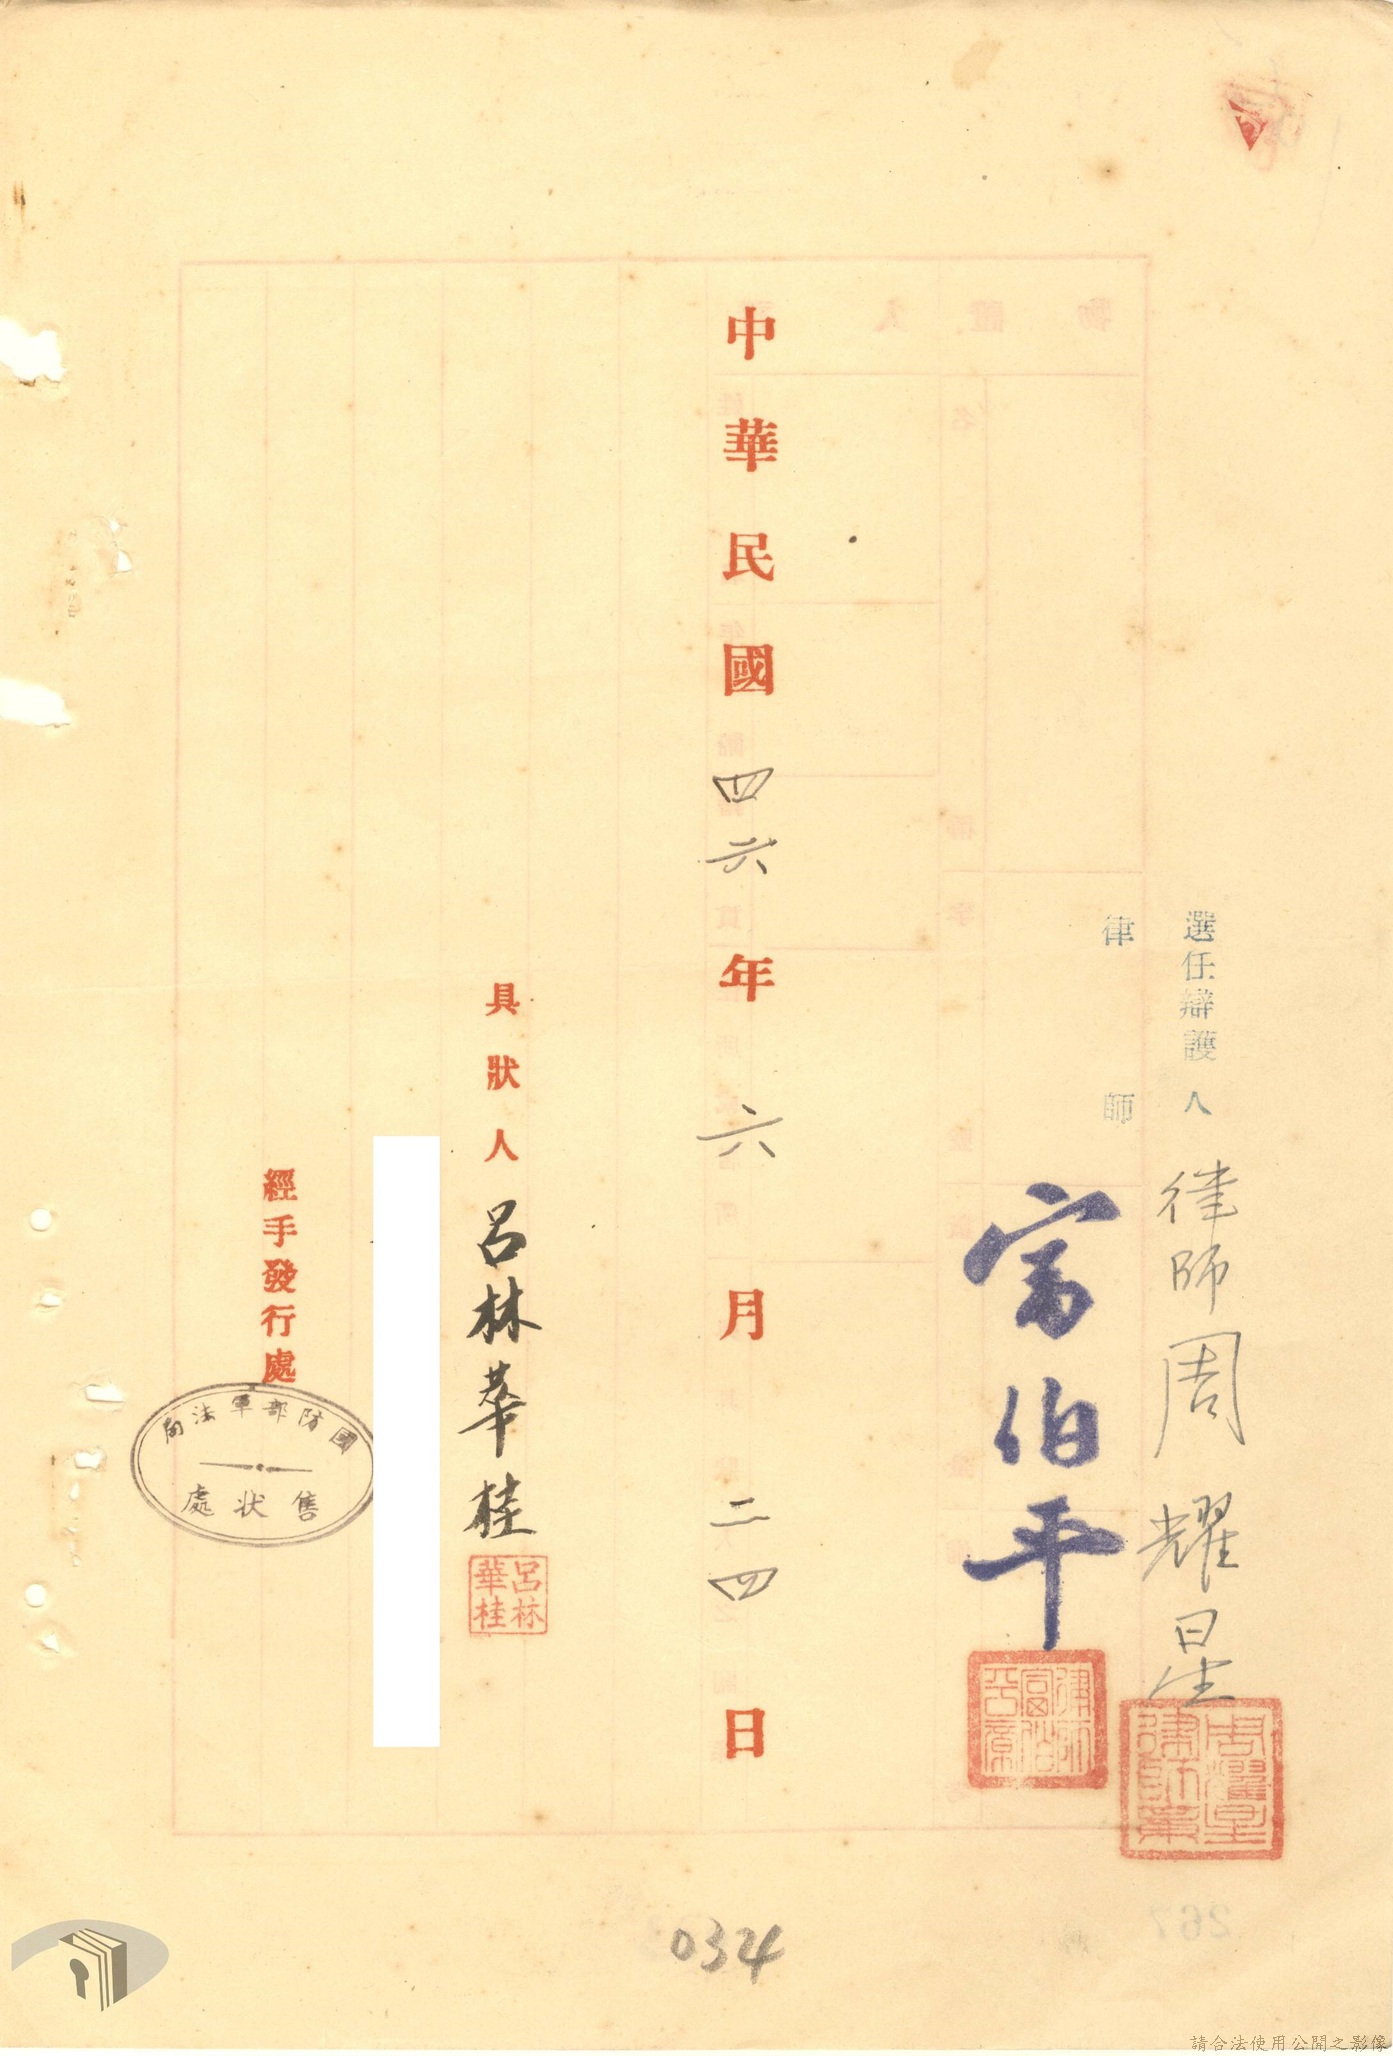 選任辯護人 律師周耀星
周耀星律師章
律師 富伯平
律師富伯平章
中華民國四六年六月二四日
具狀人 呂林華桂
呂林華桂
經手發行處
國防部軍法局
售狀處
0324
267
請合法使用公開之影像